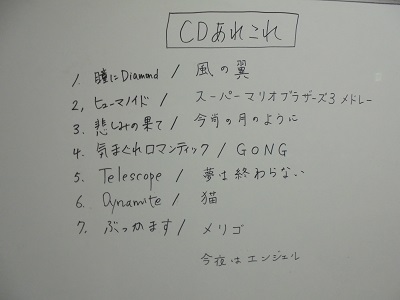 CDあれこれ
1. 瞳にDiamond / 風の翼
2, ヒューマノイド / スーパーマリオブラザーズ3メドレー
3. 悲しみの果て / 今宵の月のように
4. 気まぐれロマンティック / GONG
5. Telescope / 夢は終わらない
6. Dynamite / 猫
7. ぶっかます / メリゴ
今夜はエンジェル